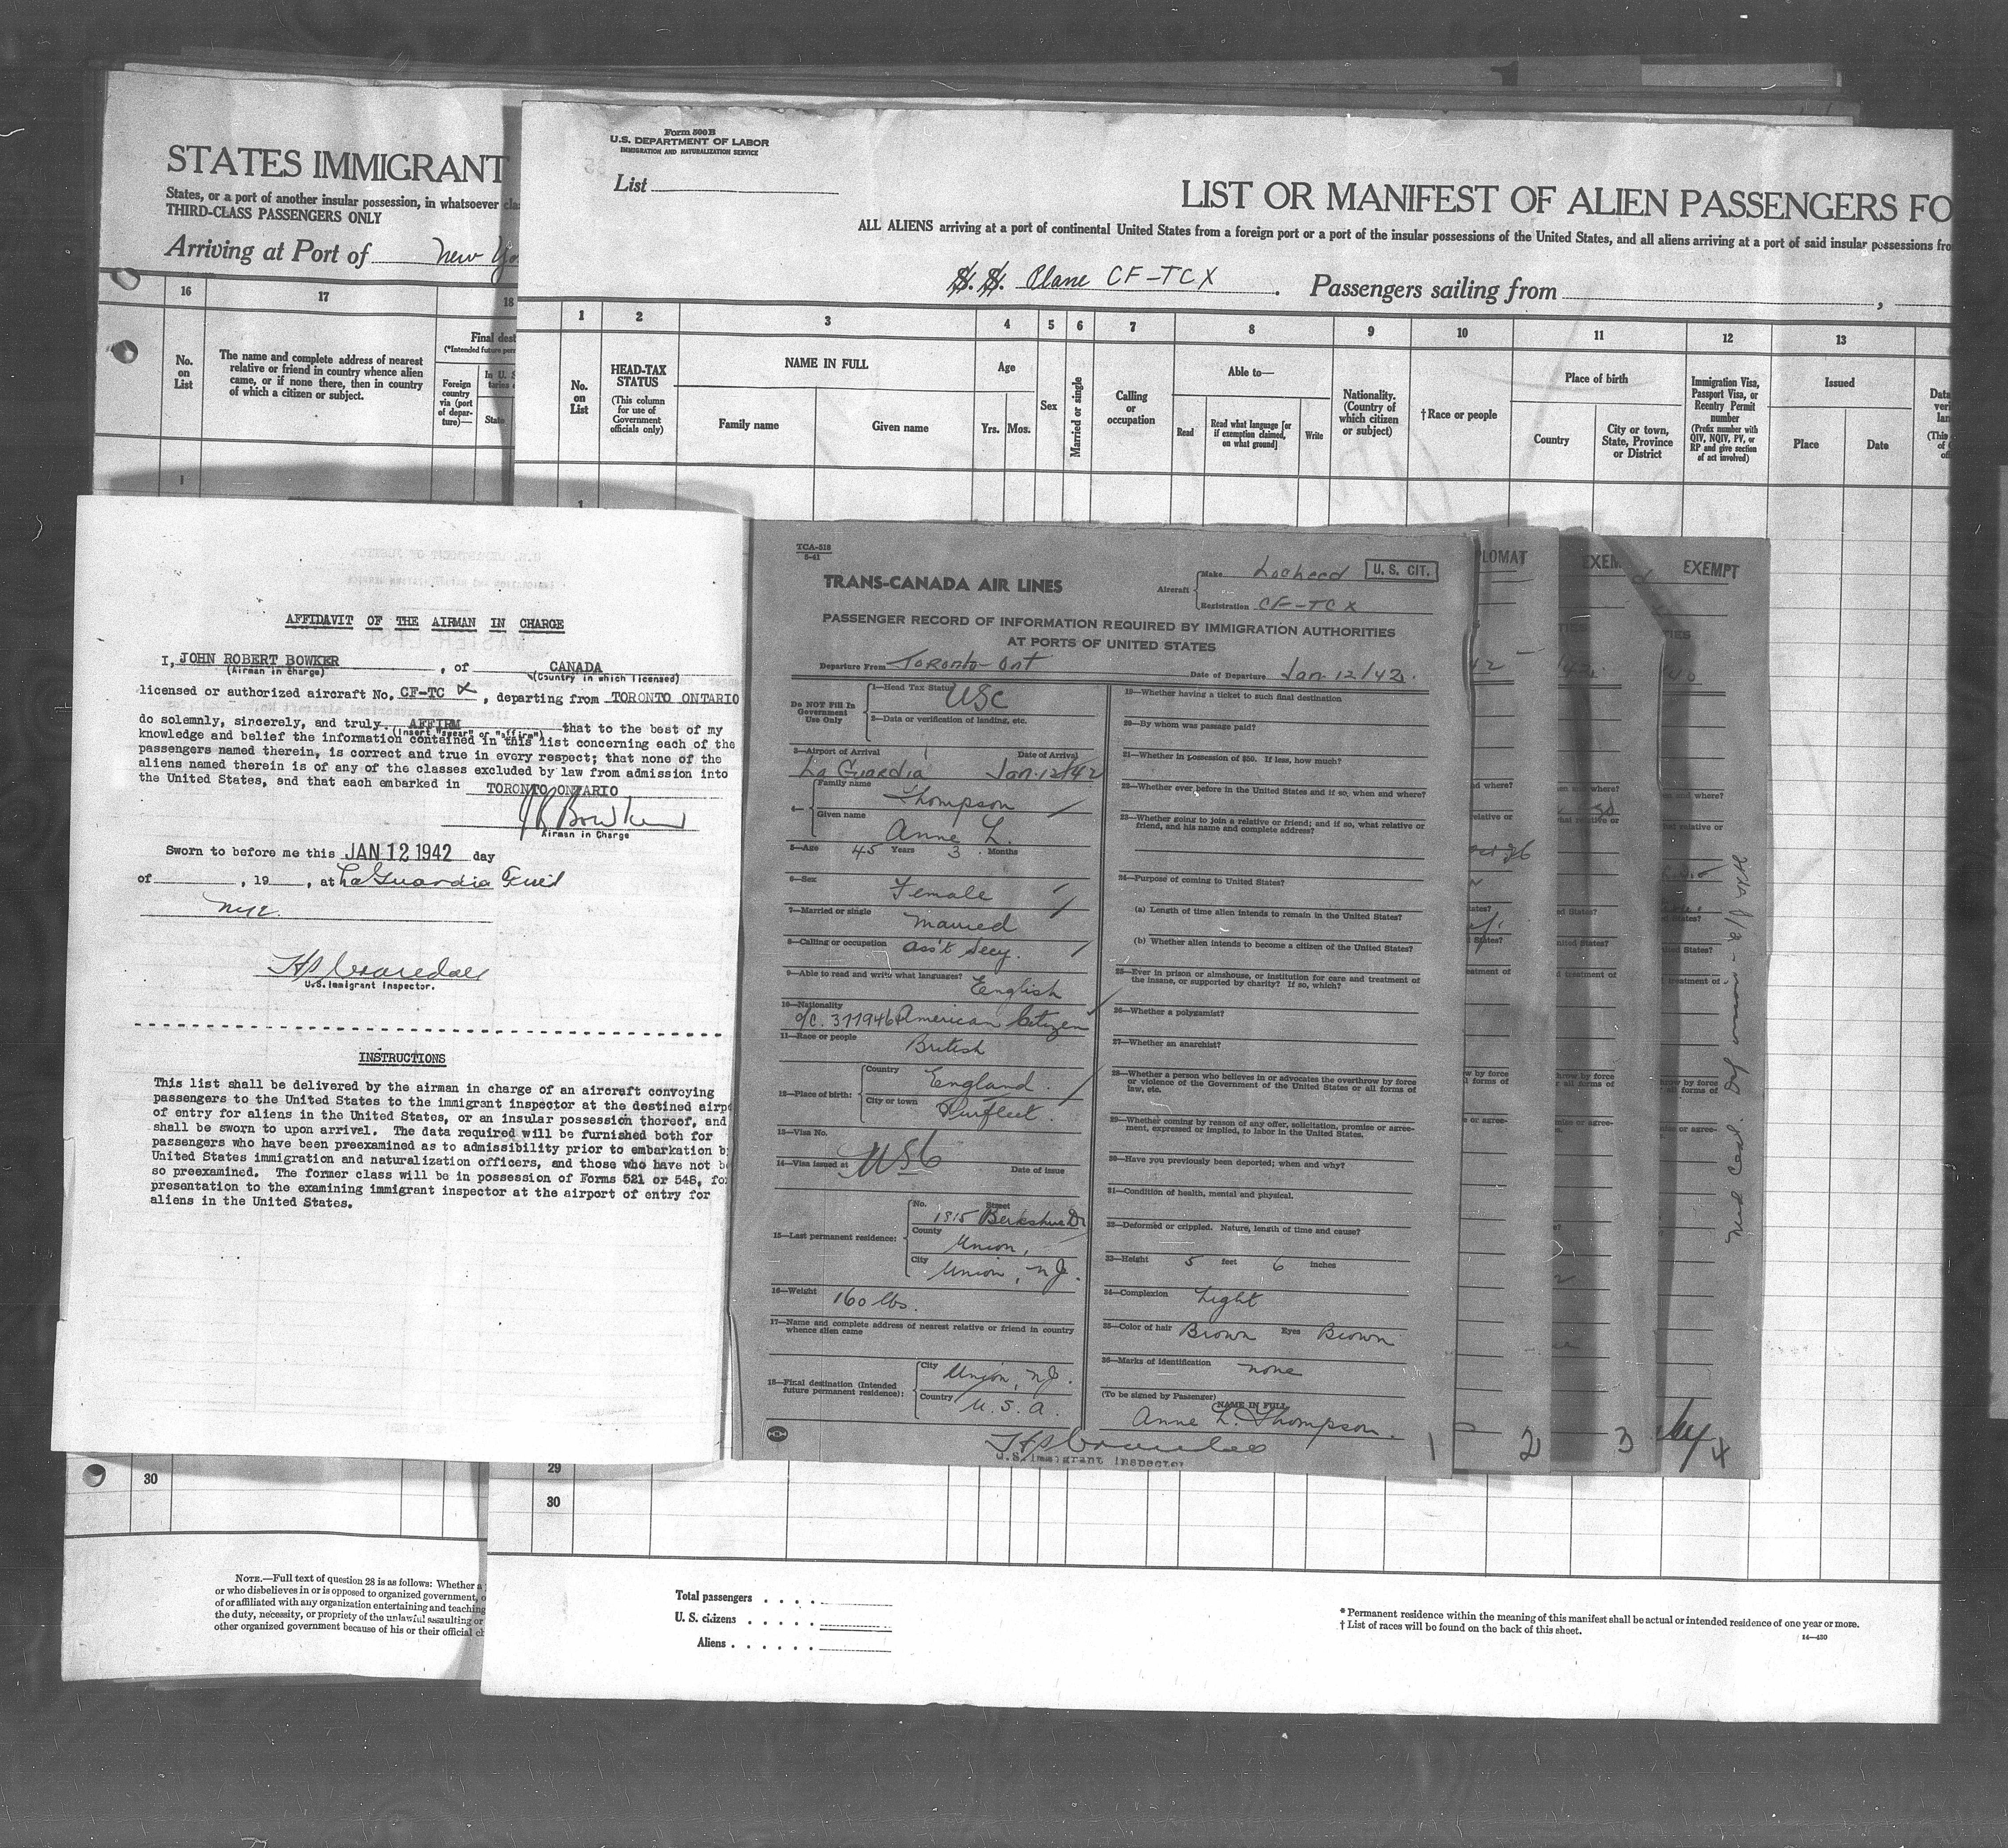 STATES IMMIGRANT
States, or a port of another insular possession, in whatsoever cla
THIRD-CLASS PASSENGERS ONLY
Arriving at Port of New Yo
16 17 18
No. on List
The name and complete address of nearest
relative or friend in country whence alien
came, or if none there, then in country
of which a citizen or subject.
Final dest
(*Intended future per
Foreign
country
via (port
of depar-
ture)—
State
1
30
NOTE.—Full text of question 28 is as follows: Whether a
or who disbelieves in or is opposed to organized government, o
of or affiliated with any organization entertaining and teaching
the duty, necessity, or propriety of the unlawful assaulting or
other organized government because of his or their official ch
Form 500 B
U.S. DEPARTMENT OF LABOR
IMMIGRATION AND NATURALIZATION SERVICE
List
LIST OR MANIFEST OF ALIEN PASSENGERS FO
ALL ALIENS arriving at a port of continental United States from a foreign port or a port of the insular possessions of the United States, and all aliens arriving at a port of said insular possessions fro
S. S. Plane CF-TCX . Passengers sailing from ,
1 2 3 4 5 6 7 8 9 10 11 12 13
No. on List
HEAD-TAX
STATUS
(This column
for use of
Government
officials only)
NAME IN FULL
Family name Given name
Age
Yrs. Mos.
Sex
Married or single
Calling
or
occupation
Able to—
Read
Read what language [or
if exemption claimed,
on what ground]
Write
Nationality.
(Country of
which citizen
or subject)
†Race or people
Place of birth
Country
City or town,
State, Province
or District
Immigration Visa,
Passport Visa, or
Reentry Permit
number
(Prefix number with
QIV, NQIV, PV, or
RP and give section
of act involved)
Issued
Place Date
Data
veri
lan
(This
of
offi
1
29
30
Total passengers . . . .
U. S. citizens . . . . .
Aliens . . . . . .
* Permanent residence within the meaning of this manifest shall be actual or intended residence of one year or more.
† List of races will be found on the back of this sheet.
14—430
AFFIDAVIT OF THE AIRMAN IN CHARGE
I, JOHN ROBERT BOWKER , of CANADA
(Airman in charge) (Country in which licensed)
licensed or authorized aircraft No. CF-TC X , departing from TORONTO ONTARIO
do solemnly, sincerely, and truly AFFIRM that to the best of my
(insert "swear" or "affirm")
knowledge and belief the information contained in this list concerning each of the
passengers named therein, is correct and true in every respect; that none of the
aliens named therein is of any of the classes excluded by law from admission into
the United States, and that each embarked in TORONTO ONTARIO
J R Bowker
Airman in Charge
Sworn to before me this JAN 12 1942 day
of , 19 , at La Guardia Field
NYC.
U.S. Immigrant Inspector.
INSTRUCTIONS
This list shall be delivered by the airman in charge of an aircraft convoying
passengers to the United States to the immigrant inspector at the destined airp
of entry for aliens in the United States, or an insular possession thereof, and
shall be sworn to upon arrival. The data required will be furnished both for
passengers who have been preexamined as to admissibility prior to embarkation b
United States immigration and naturalization officers, and those who have not b
so preexamined. The former class will be in possession of Forms 521 or 548, fo
presentation to the examining immigrant inspector at the airport of entry for
aliens in the United States.
TCA-318
5-41
TRANS-CANADA AIR LINES
Aircraft
Make Locheed
U. S. CIT.
Registration CF-TCX
PASSENGER RECORD OF INFORMATION REQUIRED BY IMMIGRATION AUTHORITIES
AT PORTS OF UNITED STATES
Departure From Toronto-Ont Date of Departure Jan. 12/42.
Do NOT Fill In
Government
Use Only
1—Head Tax Status USC
2—Data or verification of landing, etc.
3—Airport of Arrival Date of Arrival
La Guardia Jan. 12/42
4—
Family name
Thompson
Given name
Anne L.
5—Age 45 Years 3 Months
6—Sex Female
7—Married or single Married
8—Calling or occupation Ass't Secy.
9—Able to read and write what languages? English
10—Nationality
c/c. 3779468 American Citizen
11—Race or people British
12—Place of birth:
Country England.
City or town Purfleet.
13—Visa No.
14—Visa issued at USC Date of issue
15—Last permanent residence:
No. Street
1915 Berkshire Dr
County Union,
City Union, N.J.
16—Weight 160 lbs.
17—Name and complete address of nearest relative or friend in country
whence alien came
18—Final destination (Intended
future permanent residence):
City Union, N.J.
Country U. S. A.
19—Whether having a ticket to such final destination
20—By whom was passage paid?
21—Whether in possession of $50. If less, how much?
22—Whether ever before in the United States and if so, when and where?
23—Whether going to join a relative or friend; and if so, what relative or
friend, and his name and complete address?
24—Purpose of coming to United States?
(a) Length of time alien intends to remain in the United States?
(b) Whether alien intends to become a citizen of the United States?
25—Ever in prison or almshouse, or institution for care and treatment of
the insane, or supported by charity? If so, which?
26—Whether a polygamist?
27—Whether an anarchist?
28—Whether a person who believes in or advocates the overthrow by force
or violence of the Government of the United States or all forms of
law, etc.
29—Whether coming by reason of any offer, solicitation, promise or agree-
ment, expressed or implied, to labor in the United States.
30—Have you previously been deported; when and why?
31—Condition of health, mental and physical.
32—Deformed or crippled. Nature, length of time and cause?
33—Height 5 feet 6 inches
34—Complexion Light
35—Color of hair Brown Eyes Brown
36—Marks of identification none
(To be signed by Passenger)
NAME IN FULL
Anne L. Thompson.
U.S. Immigrant Inspector
1
PLOMAT
2
EXEM
3
EXEMPT
4